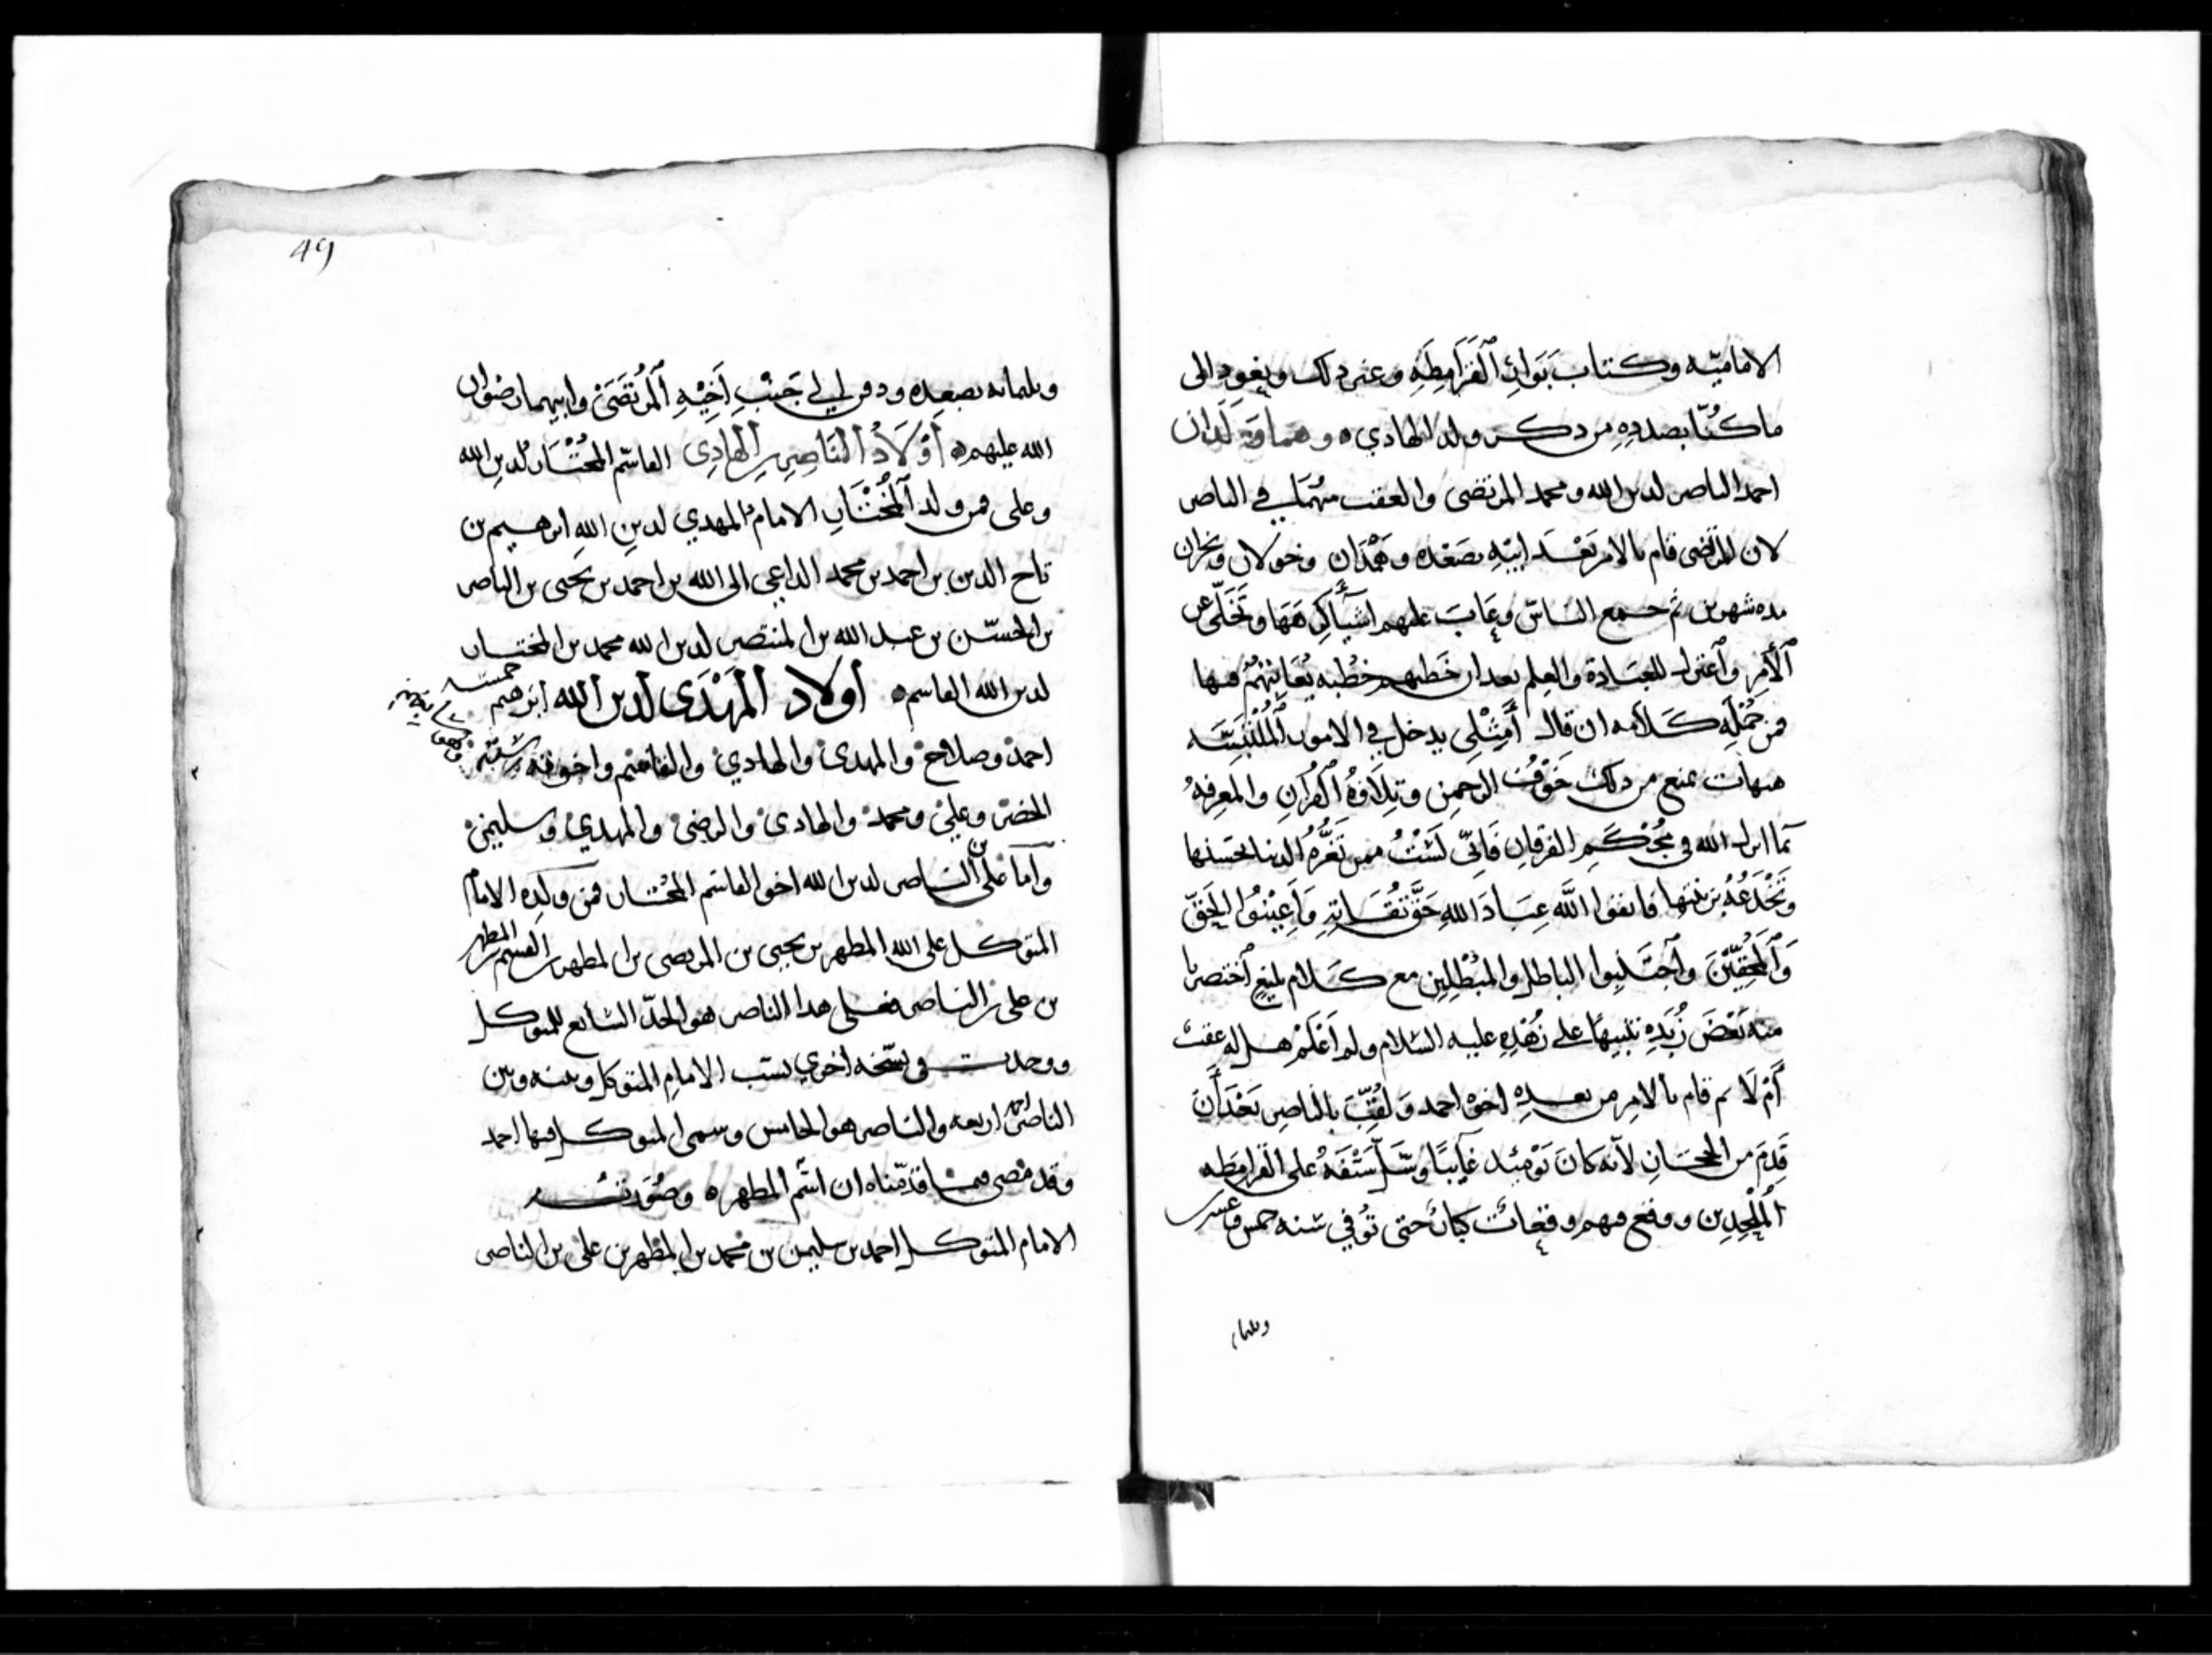 الاماميّه وكتاب بَوَائِر ٱلْقَرَامِطَةِ وغير ذلك ونعود الى
ماكُنّا بصدده من ذكر ولد الهادي ه وهما ولدان
احمد الناصر لدين الله ومحمد المرتضى والعقب منهما في الناصر
لان المرتضى قام بالامر بَعْدَ ابيه بصَعْده وهَمْدَان وخولان ونجران
مده شهرين ثم جمع الناس وعَابَ عليهم اشيآء كرهَهَا وتَخَلّى عن
ٱلْأَمِر وٱعتزل للعِبَادة والعِلم بعد ان خَطبهم خُطبه يُعَاتِبُهُمْ فيها
فمن جُمْلَةِ كَلامه ان قال أَمِثْلِى يدخل في الامور ٱلْمُلْتَبِسَه
هيهات يمنع من ذلك خَوْفُ الرحمن وتِلَاوَةُ ٱلْقُرآنِ والمعرفه
بما انزل الله في مُحْكَمِ الفرقان فَاِنّي لَسْتُ ممن تَغُرُّهُ الدنيا بحسنها
وتَخْدَعُهُ بزينتها فاتقوا ٱللَّه عِبَادَ الله حَقَّ تُقَاتِهِ وَأَعِيْنُوا الحَقَّ
وَٱلْمُحِقِّيْنَ وٱجتَنِبوا الباطل والمُبْطِلِين مع كَلام بليغ ٱختصرنا
منه بَعْضَ زُبَدِه تنبيهًا على زُهْدِه عليه السلام ولم أَعْلَمْ هل له عقب
أَمْ لَا ثم قام بالامر من بعده اخوه احمد وَلُقِّبَ بالناصر بَعْدَ أَنْ
قَدِمَ من الحِجَازِ لانه كَانَ يَوْمَئِذ غآيبًا وسَلَّ سَيْفَهُ على القرامطه
ٱلْمُلْحِدِين ووقع فيهم وقعات كبار حتى تُوُفي سنه خمس وعشرين
وثلثمايه
49
وثلثمايه بصعده ودفن الى جَنْبِ اَخِيْهِ ٱلْمُرْتَضَى وابيهما رضوان
الله عليهم ه أَوْلَادُ ٱلنَّاصِرِ بن الهَادِي القاسم المُخْتَار لدين الله
وعلى فمن ولد ٱلْمُخْتَارِ الامام المهدي لدين الله ابرهيم بن
تاج الدين بن احمد بن محمد الداعي الى الله بن احمد بن يحيى بن الناصر
بن الحسن بن عبد الله بن المنتصر لدين الله محمد بن المختار
لدين الله القاسم ه أولاد ٱلْمَهْدَى لدين ٱلله ابرهيم خمسه
احمد وصلاح والمهدى والهادي والقاسم واخوته سته
الخضر وعلي ومحمد والهادى والرضى والمهدي وسليمن
واما على بن ٱلناصر لدين الله اخو القاسم المختار فمن ولده الامام
المتوكل على الله المطهر بن يحيى بن المرتضى بن المطهر بن القسم بن المطهر
بن على بن الناصر فعلى هذا الناصر هو الجدّ السابع للمتوكل
ووجدت في نسخه اخرى نسب الامام المتوكل وبينه وبين
الناصر احمد اربعه والناصر هو الخامس وسمى المتوكل فيها احمد
وقد مضى فيما قدّمناه ان اسم المطهر ه وصُوَرته
الامام المتوكل احمد بن سليمن بن محمد بن المطهر بن على بن الناصر